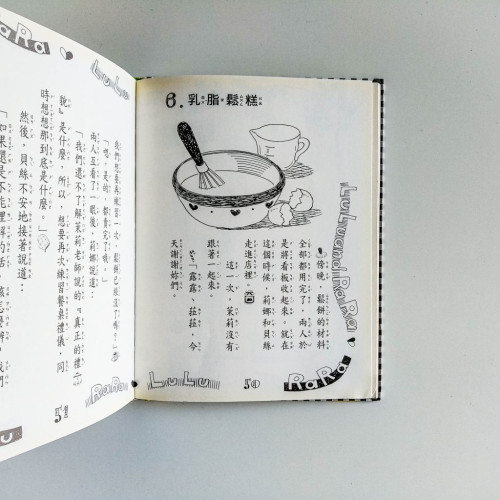 6.乳脂鬆糕
傍晚，鬆餅的材料
全部都用完了，兩人於
是將看板收起來。就在
這個時候，莉娜和貝絲
走進店裡。
這一次，茉莉沒有
跟著一起來。
「露露、菈菈，今
天謝謝妳們。
LuLu and RaRa
LuLu
50
RaRa
我們想要再練習一次，鬆餅已經沒了嗎？」
「嗯，是的，都賣完了哦。」
兩人互看了一眼後，莉娜說道：
「我們還不了解茉莉老師說的『真正的禮
貌』是什麼，所以，想要再次練習餐桌禮儀，同
時想想那到底是什麼。」
然後，貝絲不安地接著說道：
「如果還是不能理解的話，該怎麼辦，我
LuLu
RaRa
51